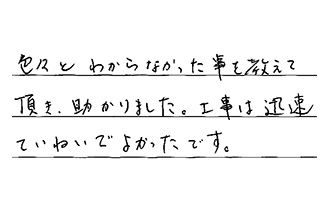 色々と わからなかった事を教えて
頂き、助かりました。工事は迅速
ていねいでよかったです。